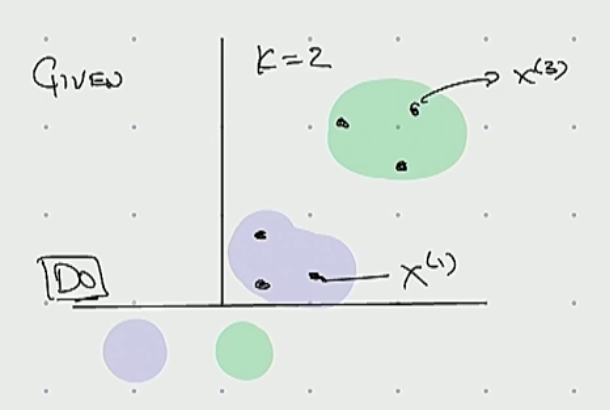 GIVEN
K=2
x^(3)
x^(1)
DO